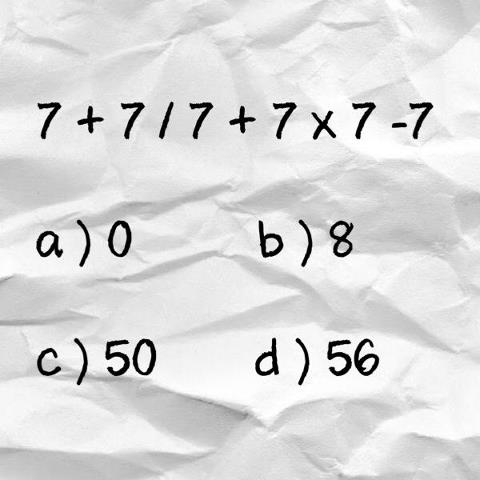 7 + 7 / 7 + 7 x 7 -7
a ) 0 b ) 8
c ) 50 d ) 56